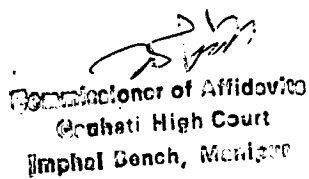 Commissioner of Affidavits
Gauhati High Court
Imphal Bench, Manipur